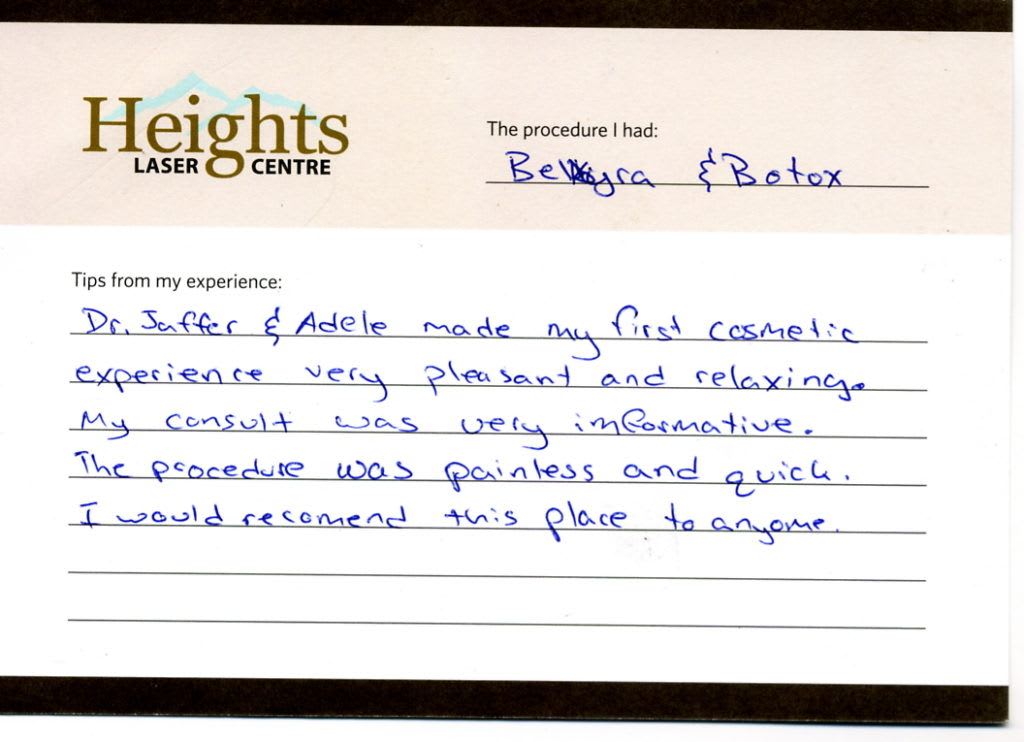 Heights
LASER CENTRE
The procedure I had:
Belkyra & Botox
Tips from my experience:
Dr. Jaffer & Adele made my first cosmetic
experience very pleasant and relaxing.
My consult was very informative.
The procedure was painless and quick.
I would recomend this place to anyone.